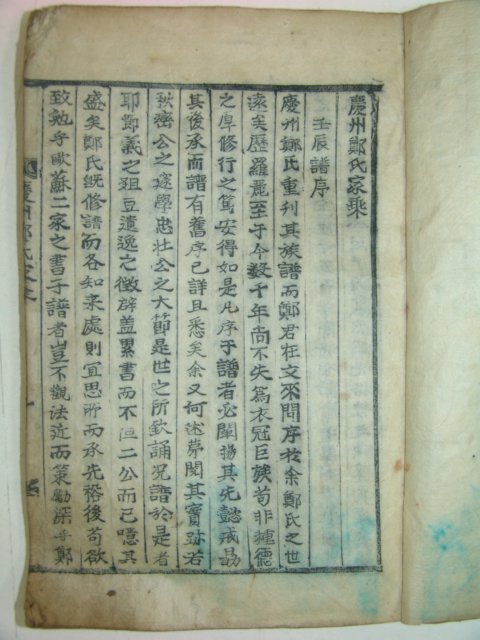 慶州鄭氏家乘
壬辰譜序
慶州鄭氏重刊其族譜而鄭君在文來問序於余鄭氏之世
遠矣歷羅麗至于今數千年尚不失爲衣冠巨族苟非種德
之厚修行之篤安得如是凡序于譜者必闡揚其先懿戒勗
其後承而譜有舊序已詳且悉矣余又何述夢聞其實跡若
敍密公之邃學忠壯公之大節是世之所欽誦況譜於是者
耶鄭義之俎豆遺逸之徵辟盖累書而不但二公而已噫其
盛矣鄭氏旣修譜而各知来處則宜思所而承先裕後苟欲
致勉乎歐蘇二家之書于譜者豈不觀法近而策勵深乎鄭
慶州鄭氏家乘